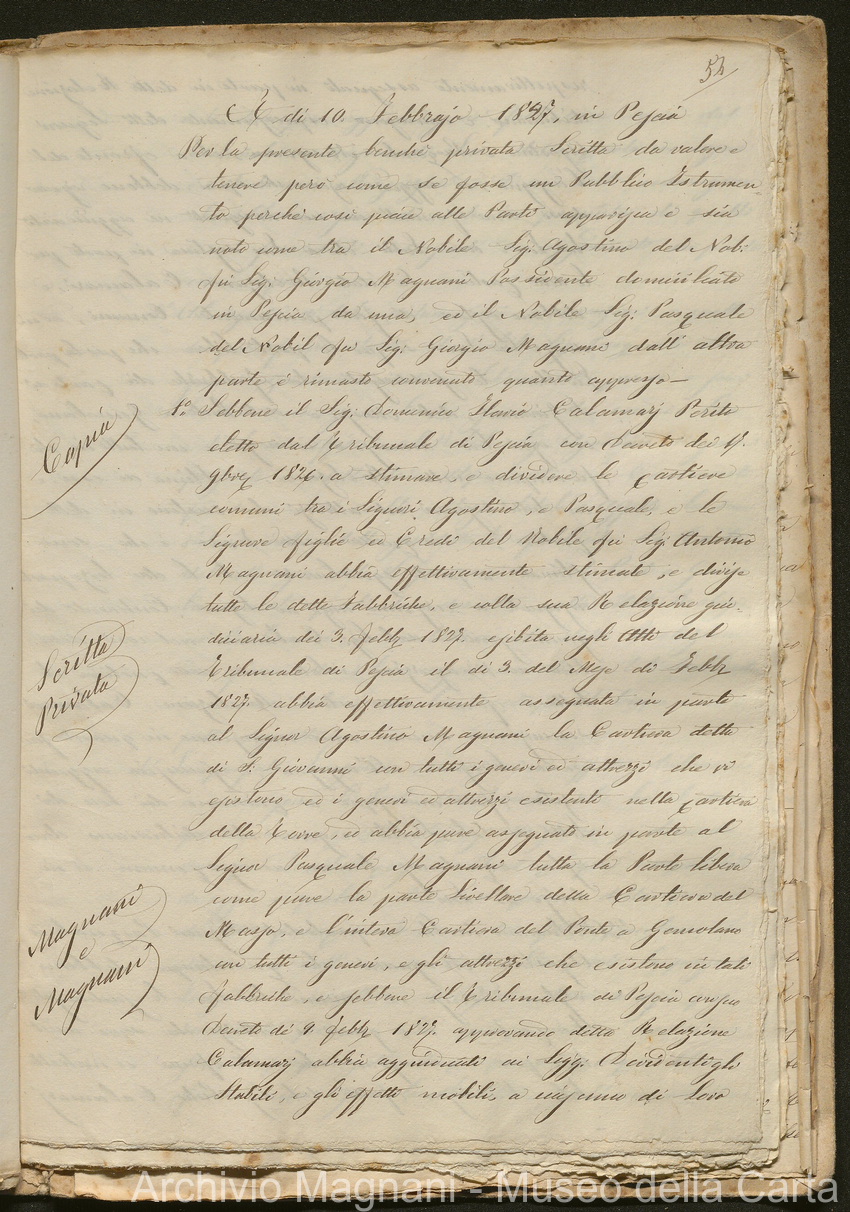 54
A di 10. Febbrajo 1827, in Pescia
Per la presente benchè privata Scritta da valere e
tenere però come se fosse un Pubblico Istrumen-
to perchè così piace alle Parti apparisca e sia
noto come tra il Nobile Sig: Agostino del Nob:
fu Sig: Giorgio Magnani Possidente domiciliato
in Pescia da una, ed il Nobile Sig: Pasquale
del Nobil fu Sig: Giorgio Magnani dall' altra
parte è rimasto convenuto quanto appresso —
1.° Sebbene il Sig: Domenico Flavio Calamarj Perito
eletto dal Tribunale di Pescia con Decreto dei
9bre 1826. a stimare, e dividere le Cartiere
comuni tra i Signori Agostino, e Pasquale, e le
Signore figlie ed Eredi del Nobile fu Sig: Antonio
Magnani abbia effettivamente stimate, e divise
tutte le dette Fabbriche, e colla sua Relazione giu-
diciaria dei 3. Febb 1827. esibita negli Atti del
Tribunale di Pescia il dì 3. del Mese di Febb
1827. abbia effettivamente assegnata in parte
al Signor Agostino Magnani la Cartiera detta
di S. Giovanni con tutti i generi ed attrezzi che vi
esistono ed i generi ed attrezzi esistenti nella Cartiera
della Torre, ed abbia pure assegnato in parte al
Signor Pasquale Magnani tutta la Parte libera
come pure la parte Livellare della Cartiera del
Masso, e l'intera Cartiera del Ponte a
con tutti i generi, e gli attrezzi che esistono in tali
Fabbriche, e sebbene il Tribunale di Pescia con suo
Decreto de' 9. Febb 1827. approvando detta Relazione
Calamarj abbia aggiudicati ai Sigg: Dividenti gli
Stabili, e gli effetti mobili, a ciascuno di Loro
Copia
Scritta
Privata
Magnani
e
Magnani
Archivio Magnani - Museo della Carta